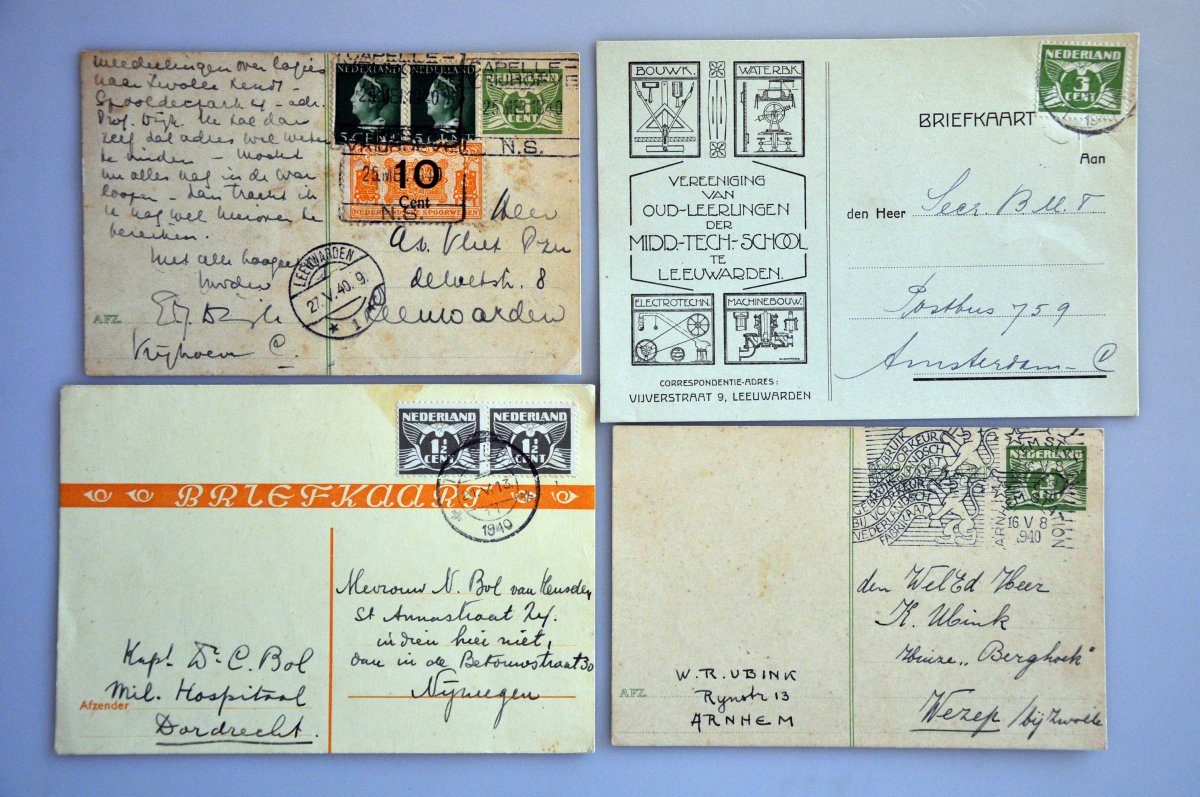 mededeelingen over logies
naar Zwolle zendt -
Spoolderpark 4 - adr.
Prof. Dijk. Ik zal dan
zelf dat adres wel weten
te vinden - Mocht
nu alles nog in de war
loopen - dan tracht ik
u nog wel hierover te
bereiken.
Met alle hoogach
AFZ.
Vrijhoeve C.
CAPELLE
NEDERLAND
5 CENT
NEDERLAND
5 CENT
NEDERLAND
N.S.
10
Cent
NEDERLANDSCHE SPOORWEGEN
N.S.
LEEUWARDEN
27.V.40.9.
1
Heer
A v. Vliet Pzn
de Wetstr. 8
Leeuwarden
BOUWK.
WATERBK.
VEREENIGING
VAN
OUD-LEERLINGEN
DER
MIDD-TECH-SCHOOL
TE
LEEUWARDEN.
ELECTROTECHN.
MACHINEBOUW.
CORRESPONDENTIE-ADRES:
VIJVERSTRAAT 9, LEEUWARDEN
NEDERLAND
3
CENT
BRIEFKAART
Aan
den Heer Secr. B.M.T
Postbus 759
Amsterdam-C
NEDERLAND
1½
CENT
NEDERLAND
1½
CENT
BRIEFKAART
V.13
11
1940
Mevrouw N. Bol van Heusden
St Annastraat 24.
indien hier niet,
dan in de Betouwstraat 30
Nijmegen
Kapt. Dr. C. Bol
Mil. Hospitaal
Afzender
Dordrecht.
GEBRUIK
BIJ VOORKEUR
NEDERLANDSCH
FABRIKAAT
NEDERLAND
3
ARNHEM STATION
16 V 8
1940
den WelEd Heer
K. Ubink
Huize "Berghoek"
Wezep / bij Zwolle
W. R. UBINK
AFZ.
Rynstr 13
ARNHEM